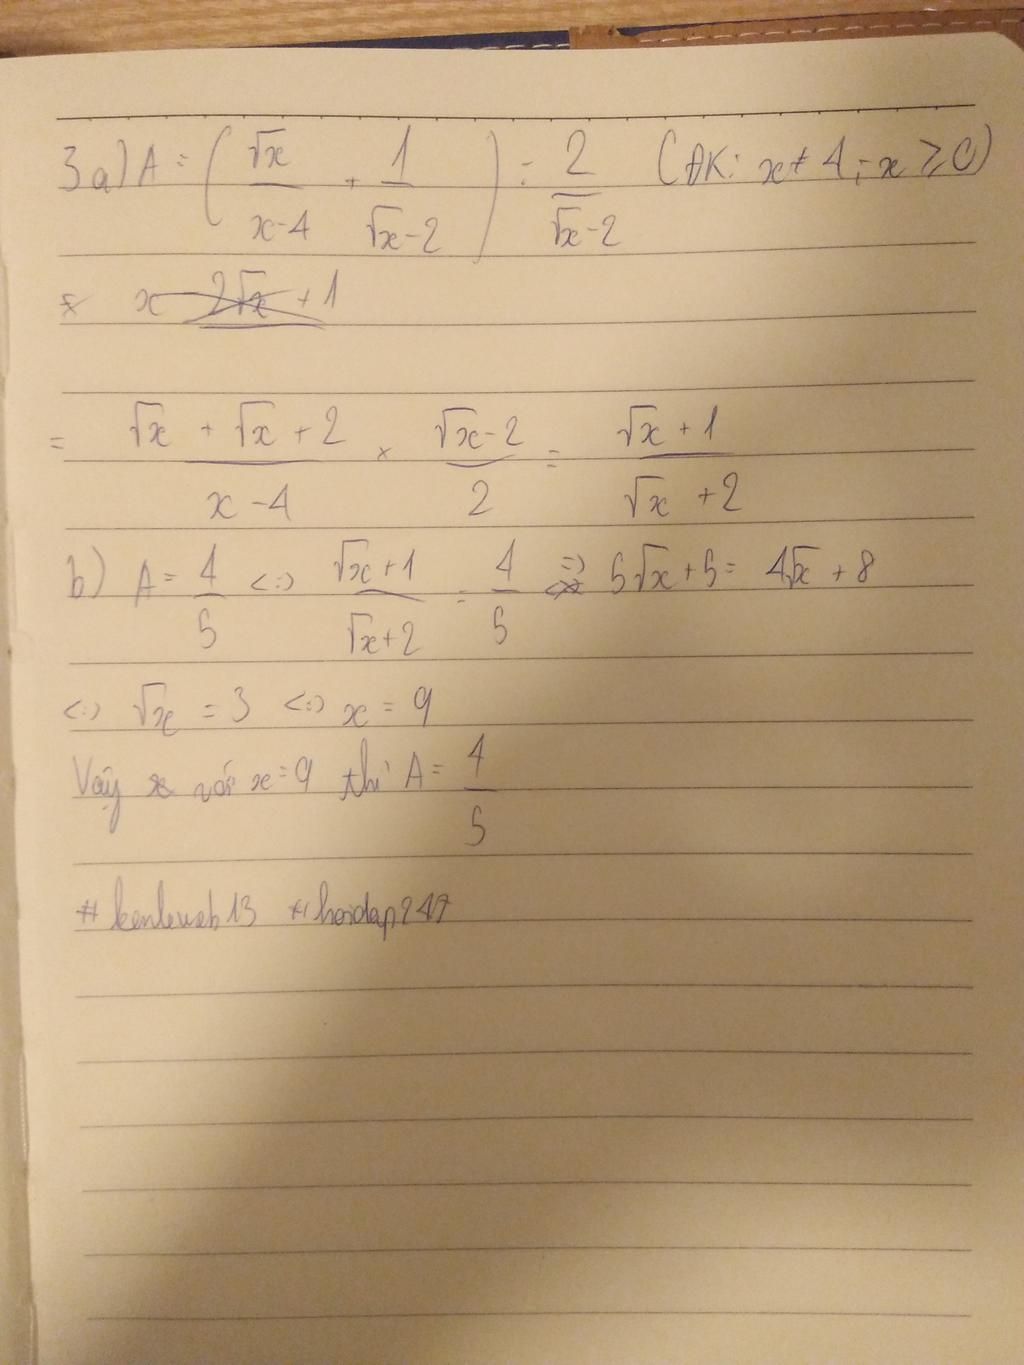 3a) A = (√x/(x-4) + 1/(√x-2)) : 2/(√x-2) (ĐK: x ≠ 4; x ≥ 0)
x 2√x + 1
= (√x + √x + 2)/(x-4) × (√x-2)/2 = (√x + 1)/(√x + 2)
b) A = 4/5 <=> (√x+1)/(√x+2) = 4/5 => 5√x + 5 = 4√x + 8
<=> √x = 3 <=> x = 9
Vậy với x = 9 thì A = 4/5
#hoidap247